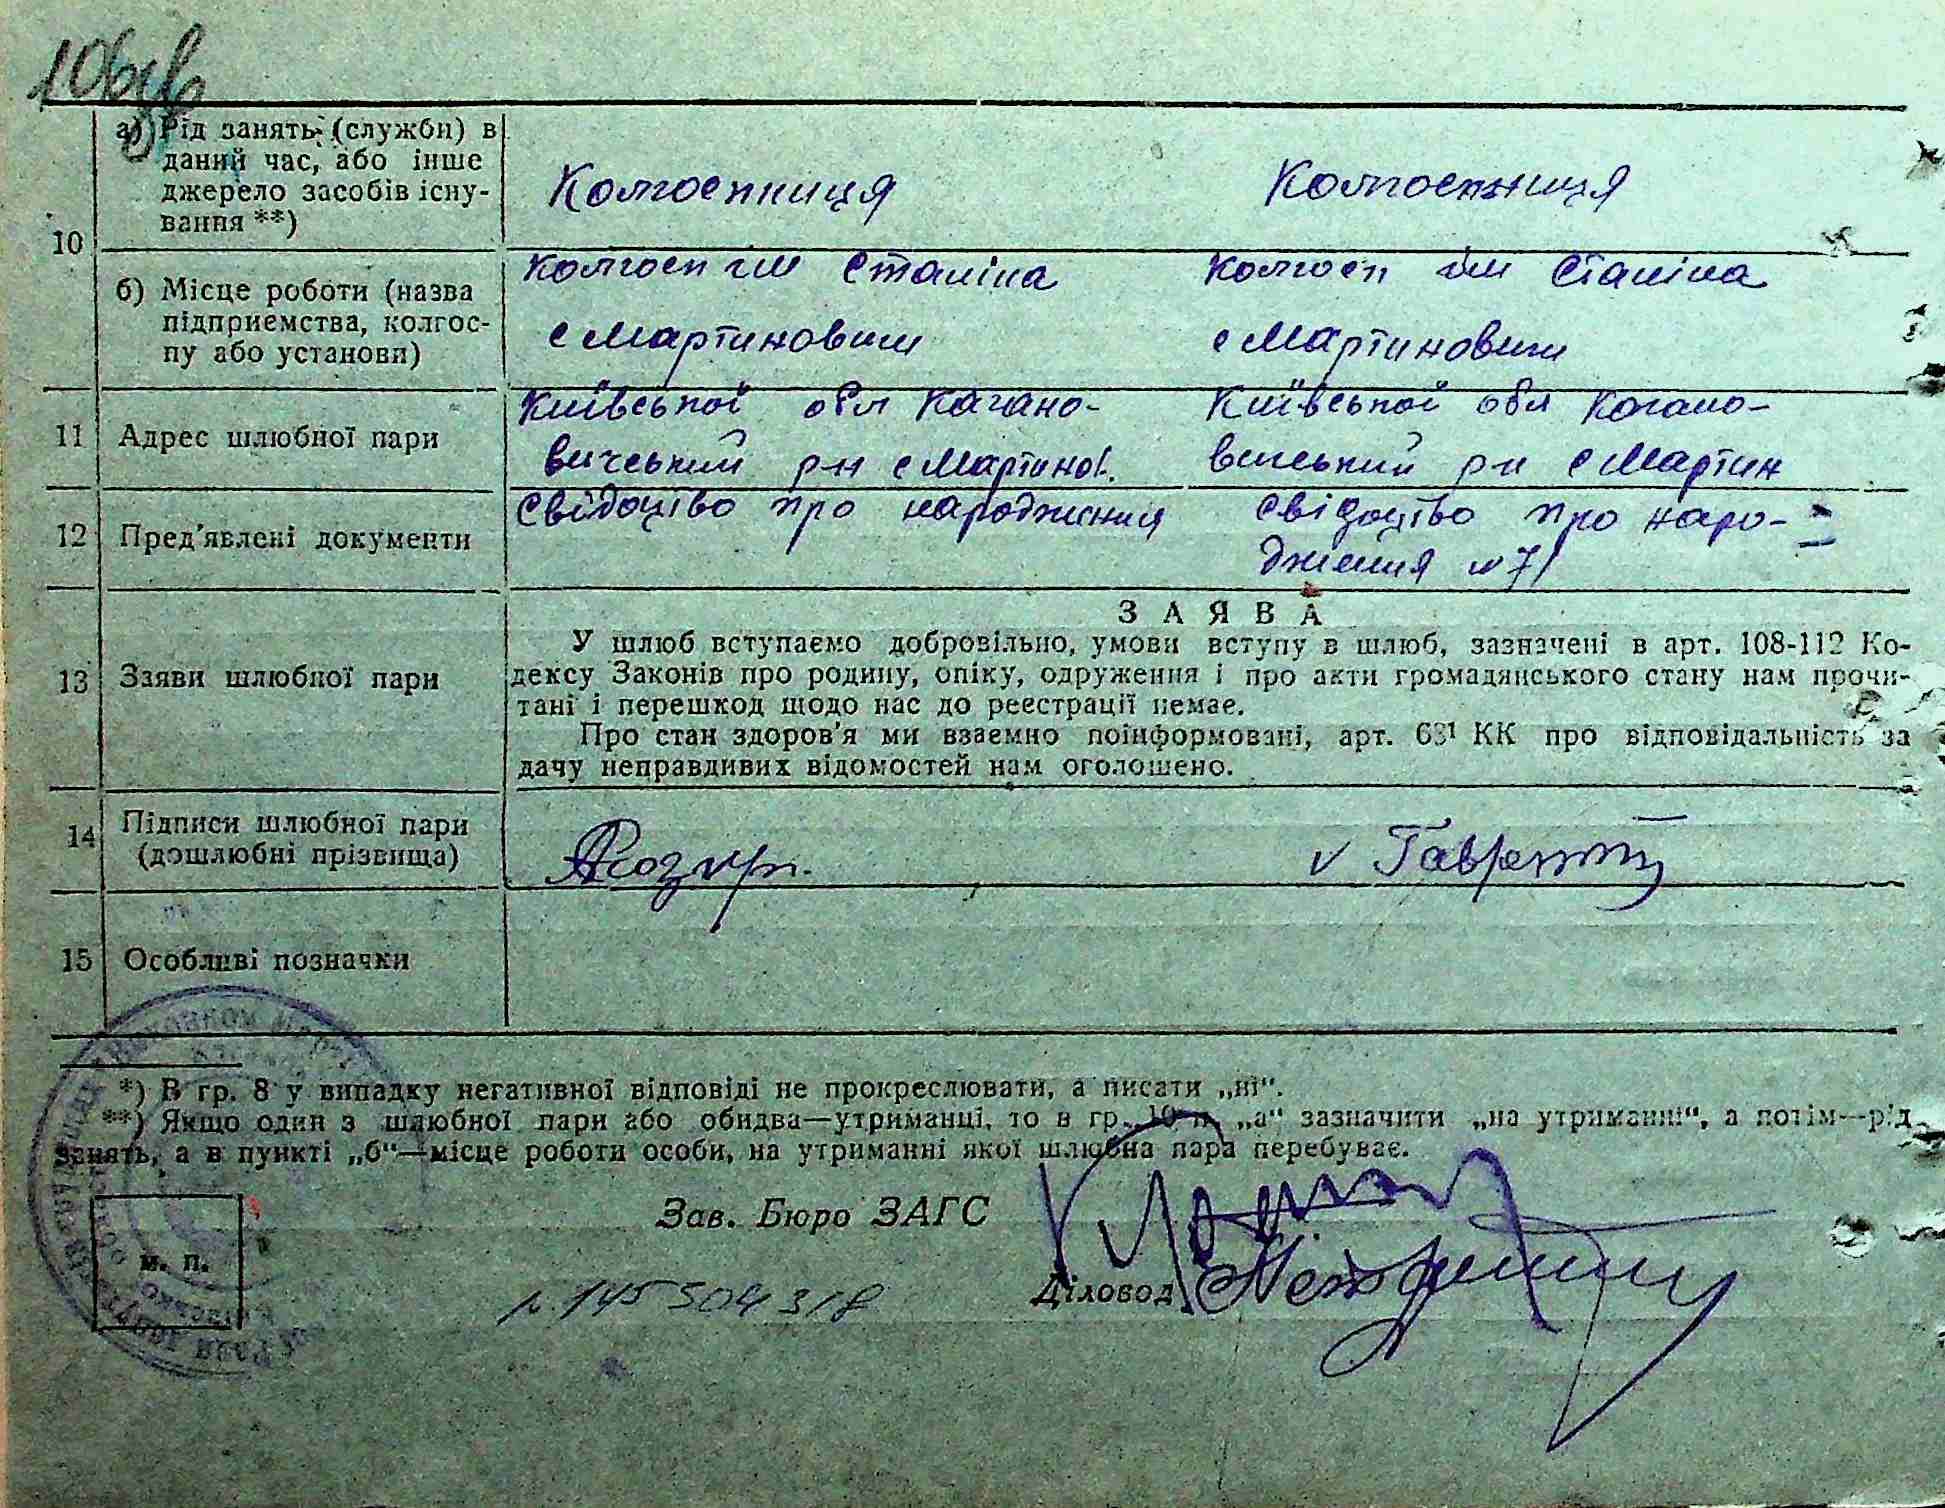 10
а) Рід занять (служби) в
даний час, або інше
джерело засобів існу-
вання **)
Колгоспниця Колгоспниця
б) Місце роботи (назва
підприємства, колгос-
пу або установи)
Колгосп ім Сталіна Колгосп ім Сталіна
с Мартиновичи с Мартиновичи
11 Адрес шлюбної пари
Київської обл Кагано- Київської обл Кагано-
вичський р-н с Мартинов. вичський р-н с Мартин
12 Пред'явлені документи
Свідоцтво про народження Свідоцтво про наро-
дження №71
13 Заяви шлюбної пари
ЗАЯВА
У шлюб вступаємо добровільно, умови вступу в шлюб, зазначені в арт. 108-112 Ко-
дексу Законів про родину, опіку, одруження і про акти громадянського стану нам прочи-
тані і перешкод щодо нас до реєстрації немає.
Про стан здоров'я ми взаємно поінформовані, арт. 63¹ КК про відповідальність за
дачу неправдивих відомостей нам оголошено.
14 Підписи шлюбної пари
(дошлюбні прізвища)
15 Особливі позначки
*) В гр. 8 у випадку негативної відповіді не прокреслювати, а писати „ні“.
**) Якщо один з шлюбної пари або обидва—утриманці, то в гр. 10 п. „а“ зазначити „на утриманні“, а потім—рід
занять, а в пункті „б“—місце роботи особи, на утриманні якої шлюбна пара перебуває.
Зав. Бюро ЗАГС
м. п.
Діловод